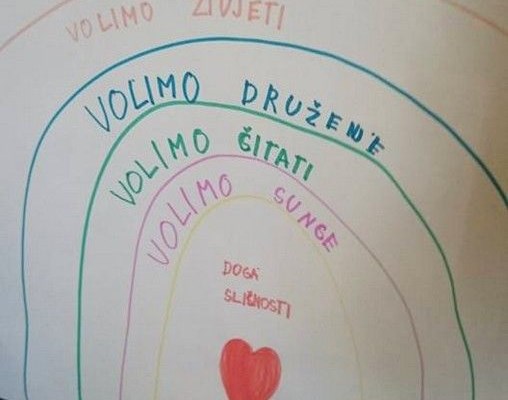 VOLIMO ŽIVJETI
VOLIMO DRUŽENJE
VOLIMO ČITATI
VOLIMO SUNCE
DOGA
SLIČNOSTI